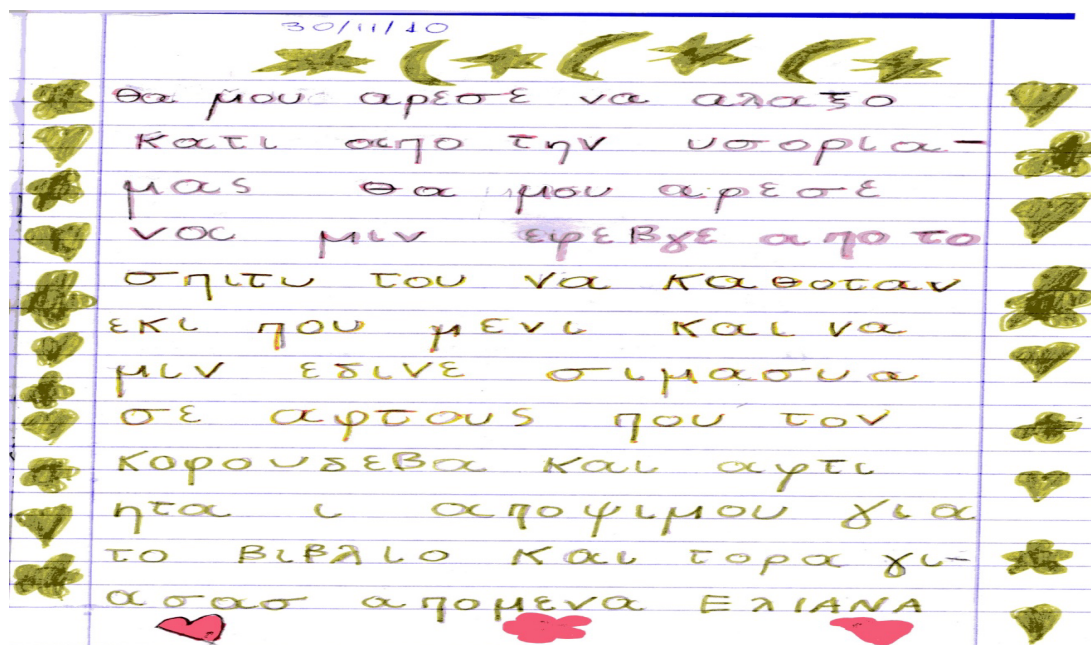 30/11/10
θα μου αρεσε να αλαξο
κατι απο την υσορια-
μας θα μου αρεσε
νας μιν εφεβγε απο το
σπιτυ του να καθοταν
εκι που μενι και να
μιν εδινε σιμασυα
σε αφτους που τον
κορουδεβα και αφτι
ητα ι αποψιμου για
το βιβλιο και τορα γι-
ασασ απομενα ΕλΙΑΝΑ